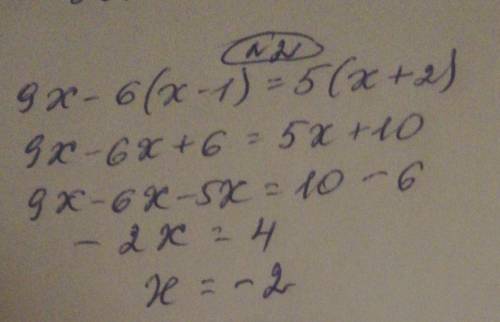 №2
9x - 6(x - 1) = 5(x + 2)
9x - 6x + 6 = 5x + 10
9x - 6x - 5x = 10 - 6
- 2x = 4
x = - 2